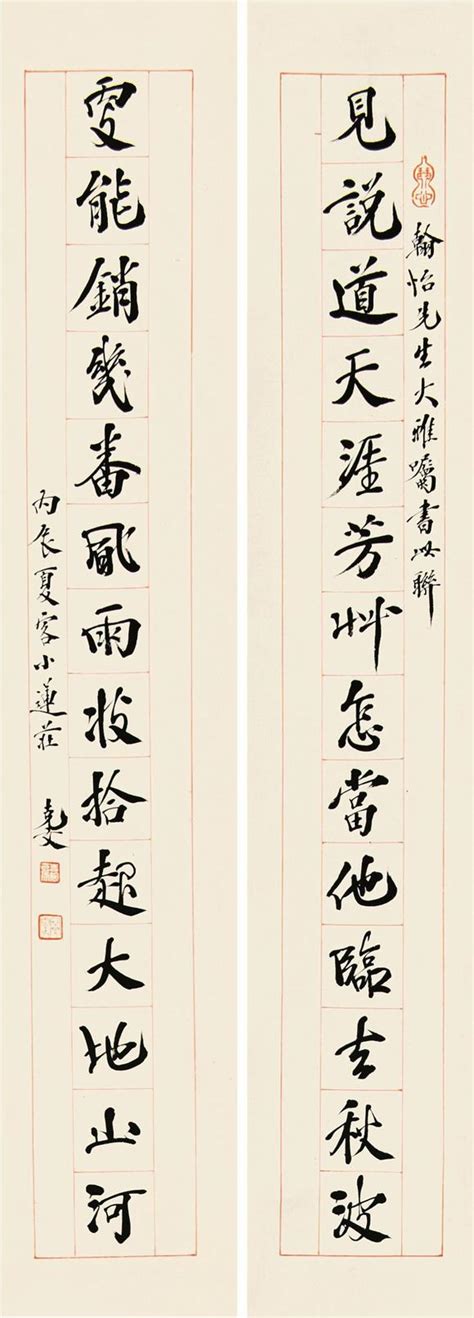 翰怡先生大雅囑書此聯
見說道天涯芳艸怎當他臨去秋波
更能銷幾番風雨收拾起大地山河
丙辰夏客小蓮莊